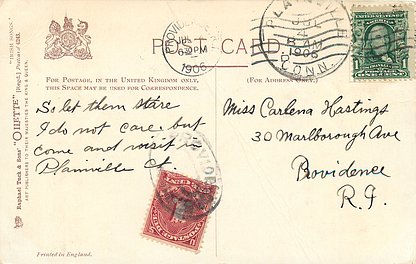 POST CARD.
FOR POSTAGE, IN THE UNITED KINGDOM ONLY,
THIS SPACE MAY BE USED FOR CORRESPONDENCE.
(FOR ADDRESS ONLY.)
So let them stare
I do not care but
come and visit in
Plainville Ct.
Miss Carlena Hastings
30 Marlborough Ave
Providence
R.I.
"BUSH SONGS."
Raphael Tuck & Sons' "OILETTE" [Regd.] Postcard
ART PUBLISHERS TO THEIR MAJESTIES THE KING & QUEEN.
1906
1906
CONN.
Printed in England.